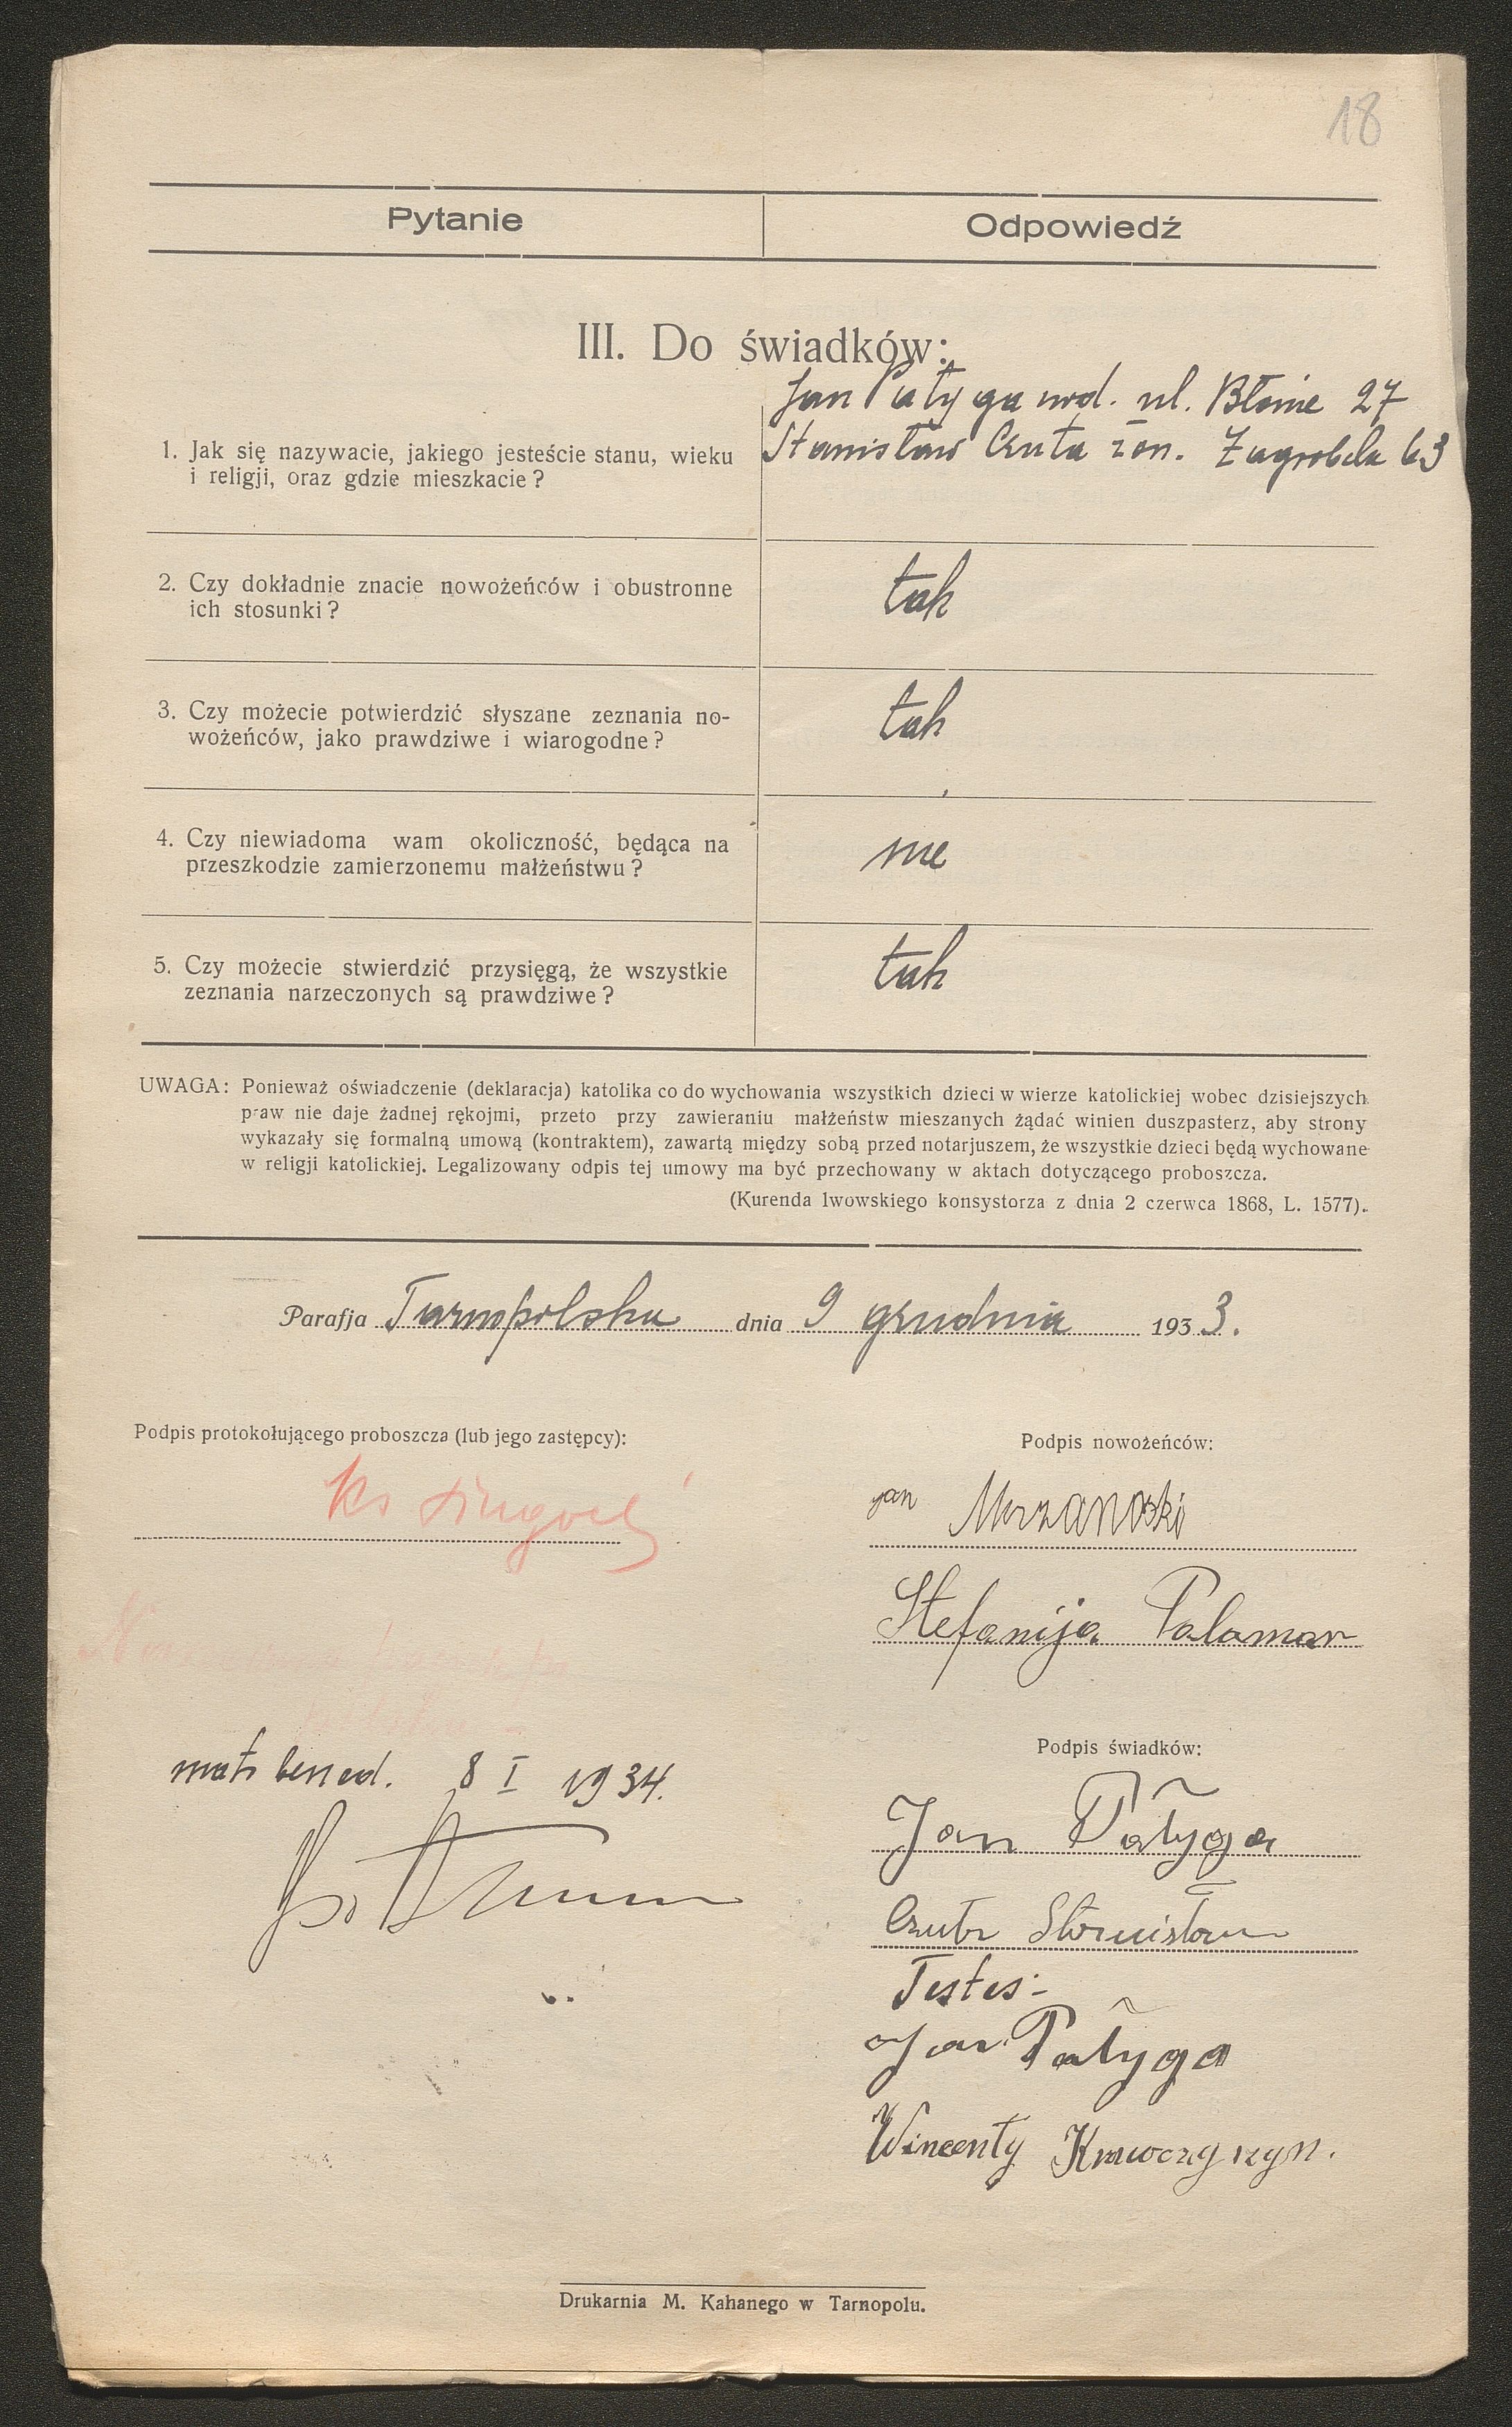 18
Pytanie
Odpowiedź
III. Do świadków:
Jan Pałyga wd. ul. Błonie 27
1. Jak się nazywacie, jakiego jesteście stanu, wieku
i religji, oraz gdzie mieszkacie?
Stanisław Czuta żon. Zagrobela 63
2. Czy dokładnie znacie nowożeńców i obustronne
ich stosunki?
tak
3. Czy możecie potwierdzić słyszane zeznania no-
wożeńców, jako prawdziwe i wiarogodne?
tak
4. Czy niewiadoma wam okoliczność, będąca na
przeszkodzie zamierzonemu małżeństwu?
nie
5. Czy możecie stwierdzić przysięgą, że wszystkie
zeznania narzeczonych są prawdziwe?
tak
UWAGA: Ponieważ oświadczenie (deklaracja) katolika co do wychowania wszystkich dzieci w wierze katolickiej wobec dzisiejszych
praw nie daje żadnej rękojmi, przeto przy zawieraniu małżeństw mieszanych żądać winien duszpasterz, aby strony
wykazały się formalną umową (kontraktem), zawartą między sobą przed notarjuszem, że wszystkie dzieci będą wychowane
w religji katolickiej. Legalizowany odpis tej umowy ma być przechowany w aktach dotyczącego proboszcza.
(Kurenda lwowskiego konsystorza z dnia 2 czerwca 1868, L. 1577).
Parafja Tarnopolska dnia 9 grudnia 1933.
Podpis protokołującego proboszcza (lub jego zastępcy):
Ks
Podpis nowożeńców:
Jan
Stefanija Palamar
matr bened. 8 I 1934.
Podpis świadków:
Jan Pałyga
Czuta Stanisław
Testes:
Jan Pałyga
Wincenty Krawczyszyn.
Drukarnia M. Kahanego w Tarnopolu.